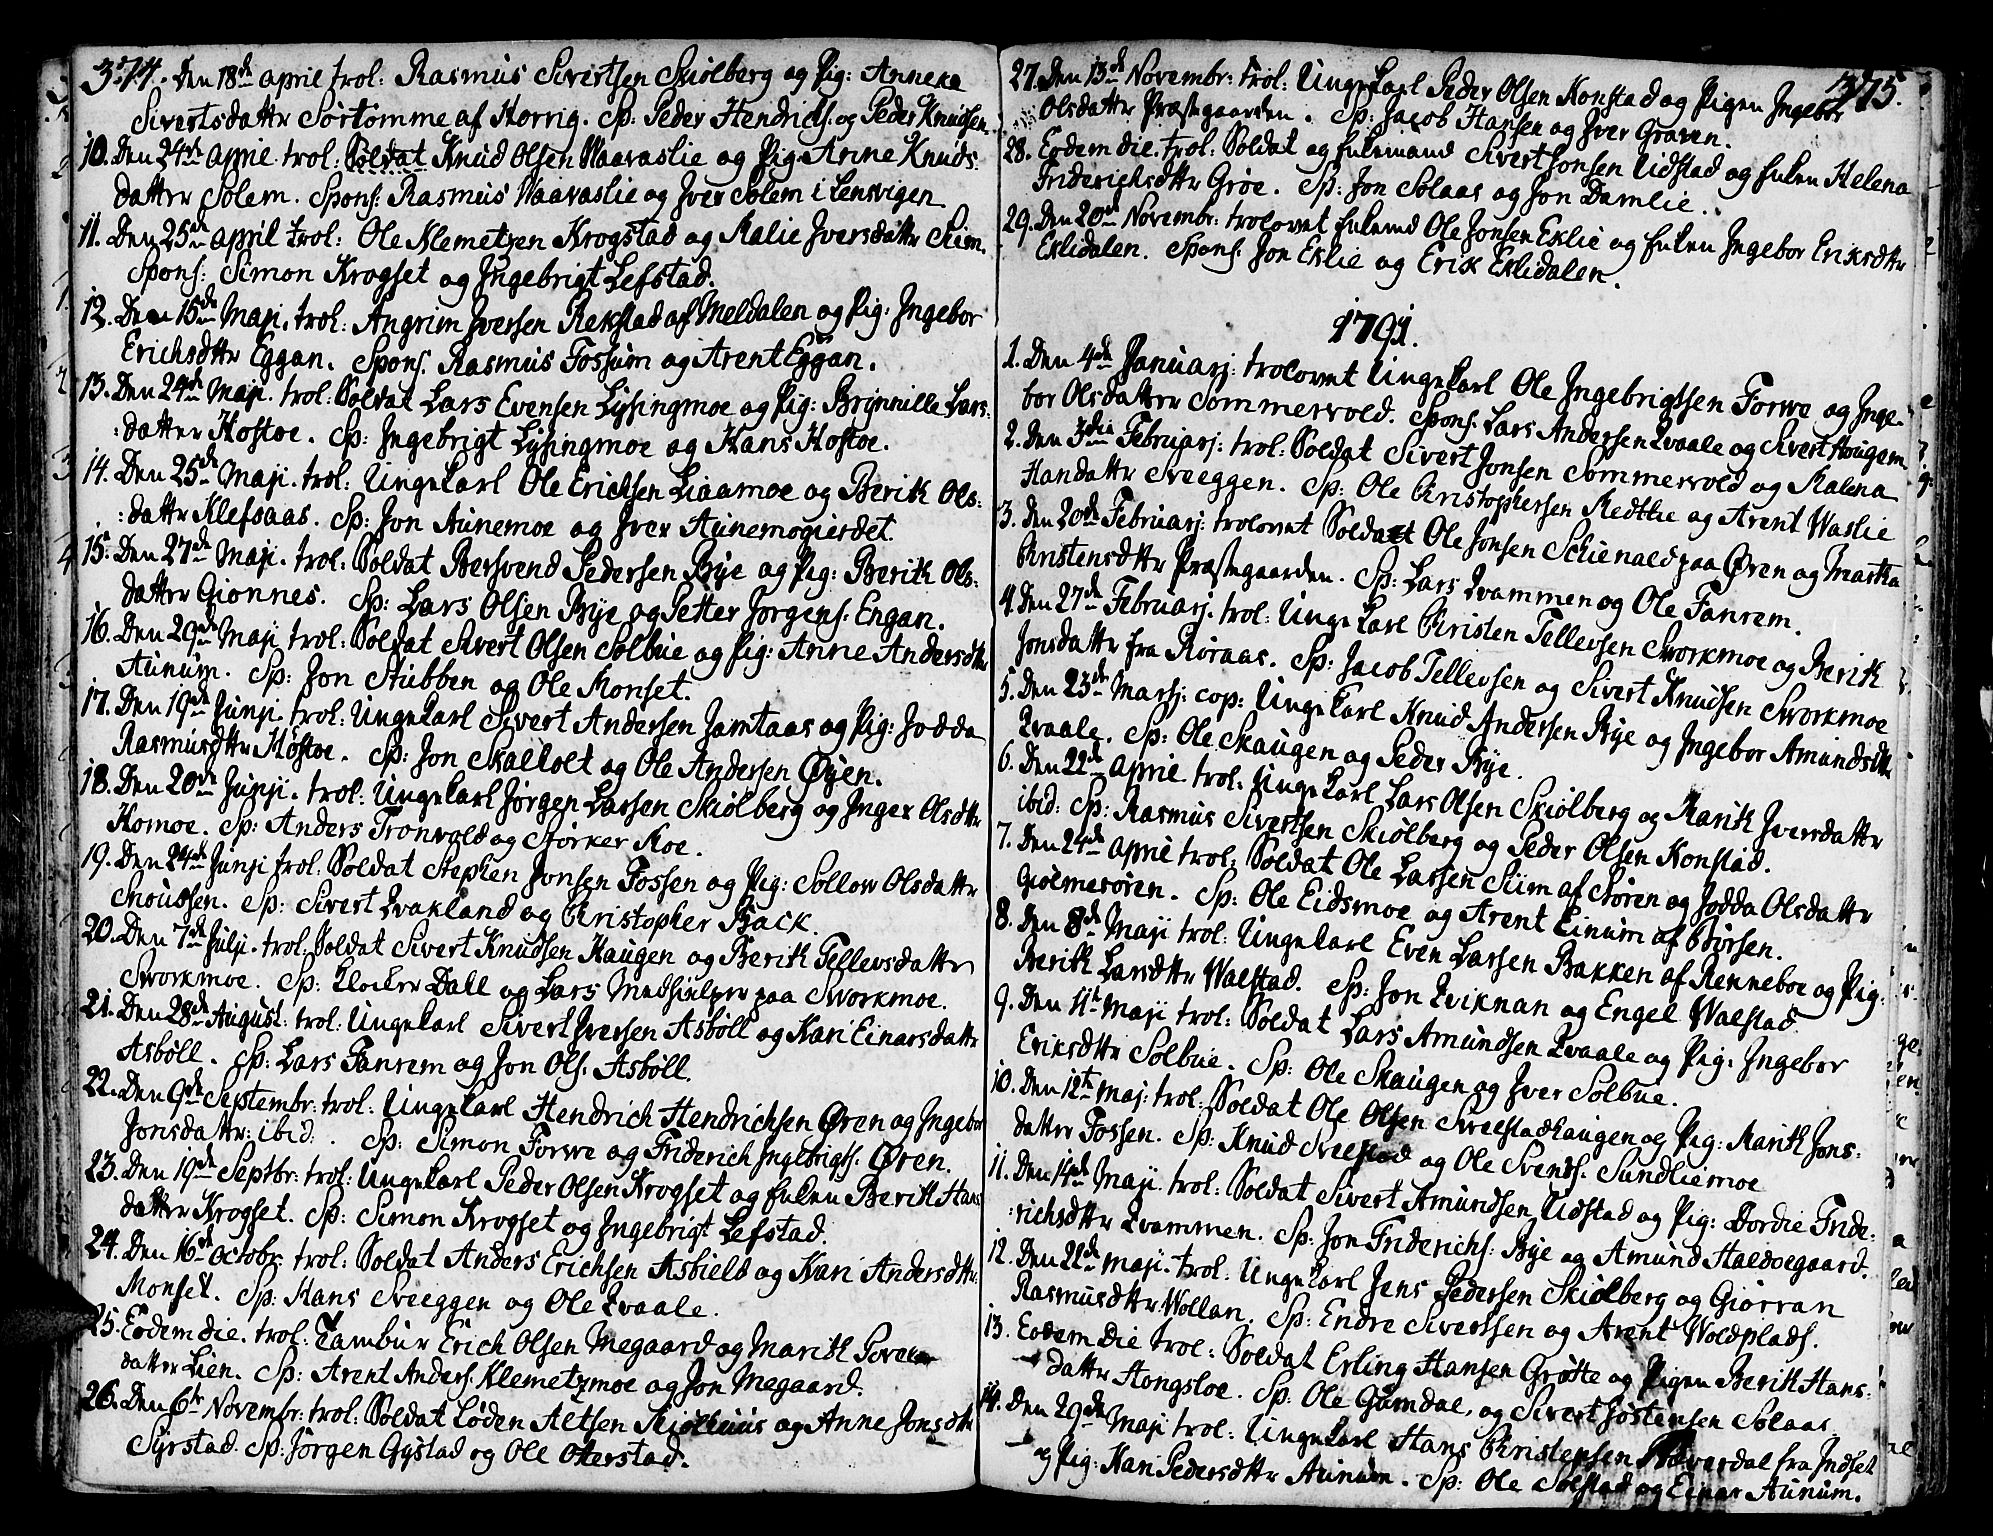 374. Den 18de April trol: Rasmus Sivertsen Skiølberg og Pig: Anneke
Sivertsdattr Sørtømme af Horrig. Sp: Peder Hendrichs. og Peder Knudsen.
10. Den 24de April trol: Soldat Knud Olsen Waavaslie og Pig: Anne Knuds-
datter Solem. Spons: Rasmus Waavaslie og Iver Solem i Lensvigen
11. Den 25de April trol: Ole Klemetzen Krogstad og Kalie Iversdattr Siim
Spons: Simon Krogset og Ingebrigt Lefstad.
12. Den 15de Maji. trol: Angrim Iversen Rekstad af Meldalen og Pig: Ingebor
Erichsdttr Eggan. Spons. Rasmus Fossum og Arent Eggan.
13. Den 24de Maji. trol: Soldat Lars Evensen Lysingmoe og Pig: Brynnille Lars:
:datter Hostoe. Sp: Ingebrigt Lysingmoe og Hans Hostoe.
14. Den 25de Maji. trol: Ungekarl Ole Erichsen Liaamoe og Berit Ols:
:dattr Klefsaas. Sp: Jon Aunemoe og Iver Aunemogierdet.
15. Den 27de Maji. trol: Soldat Bersvend Pedersen Bye og Pig: Berit Ols:
datter Gionnes. Sp: Lars Olsen Bye og Petter Jørgens. Engan.
16. Den 29de Maji trol: Soldat Sivert Olsen Solbue og Pig: Anne Andersdttr
Aunum. Sp: Jon Stubben og Ole Monset.
17. Den 19de Junji. trol: Ungekarl Sivert Andersen Jamtaas og Pig: Jodda
Rasmusdttr Høstoe. Sp: Jon Skalholt og Ole Andersen Øyen.
18. Den 20de Junji. trol: Ungekarl Jørgen Larsen Skiølberg og Inger Olsdttr
Homoe. Sp: Anders Tronvold og Størker Hoe.
19. Den 24de Junji trol: Soldat Stephen Jonsen Fossen og Pig: Sollow Olsdattr
Snoussen. Sp: Sivert Kvakland og Christopher Back.
20. Den 7de Julji. trol: Soldat Sivert Knudsen Haugen og Berit Tellevsdattr
Sworkmoe. Sp: Klocker Dahl og Lars Medhielper paa Sworkmoe.
21. Den 28de August: trol: Ungekarl Sivert Iversen Asbøll og Kari Einarsdattr
Asbøll. Sp: Lars Fanrem og Jon Ols. Asbøll.
22. Den 9de Septembr: trol: Ungekarl Hendrich Hendrichsen Øren og Ingebor
Jonsdattr: ibid: . Sp: Simon Forwe og Friderich Ingebrigts. Øren.
23. Den 19de Septbr: trol: Ungekarl Peder Olsen Krogset og Enken Berit Hans
dattr Krogset. Sp: Simon Krogset og Ingebrigt Lefstad.
24. Den 16de Octobr. trol: Soldat Anders Erichsen Asbiell og Kari Andersdttr:
Monset. Sp: Hans Sveeggen og Ole Kvaale.
25. Eodem die. trol: Tambur Erich Olsen Megaard og Marit
datter Lien. Sp: Arent Anders. Klemetzmoe og Jon Megaard.
26. Den 6te Novembr: trol: Soldat Løden Altsen og Anne Jonsdttr
Syrstad. Sp: Jørgen Gystad og Ole Oterstad.
375.
27. Den 13de Novembr: trol: Ungekarl Peder Olsen Konstad og Pigen Ingebor
Olsdattr Præstegaarden. Sp: Jacob Hansen og Iver Graven.
28. Eodem die. trol: Soldat og Enkemand Sivert Jonsen Udstad og Enken Helena
Friderichsdttr Grøe. Sp: Jon Solaas og Jon Damlie.
29. Den 20de Novembr: trolovet Enkemd Ole Jonsen Eklie og Enken Ingebor Eriksdttr
Eklidalen. Spons. Jon Eklie og Erik Eklidalen.
1791.
1. Den 4de Januarj: trolovet Ungekarl Ole Ingebrigtsen Forwe og Inge-
bor Olsdatter Sommervold. Spons. Lars Andersen Kvaale og Sivert Hougem
2. Den 3die Februarj: trol: Soldat Sivert Jonsen Sommervold og Kalena
Handattr Sveeggen. Sp: Ole Christophersen Redttie og Arent Waslie
3. Den 20de Februarj: trolovet Soldat Ole Jonsen Schienald paa Øren og Martha
Christensdttr Præstegaarden. Sp: Lars Kvammen og Ole Fanrem.
4. Den 27de Februarj. trol: Ungekarl Christen Tellevsen Sworkmoe og Berit
Jonsdattr fra Røraas. Sp: Jacob Tellevsen og Sivert Knudsen Sworkmoe
5. Den 23de Marsj: cop: Ungekarl Knud Andersen Bye og Ingebor Amundsdttr
Kvaale. Sp: Ole Skaugen og Peder Bye.
6. Den 22de April trol: Ungekarl Lars Olsen Skiølberg og Marit Iversdattr
ibid: Sp: Rasmus Sivertsen Skiølberg og Peder Olsen Konstad.
7. Den 24de April trol: Soldat Ole Larsen Siim af Støren og Jodda Olsdattr
Giølmesøren. Sp: Ole Eidsmoe og Arent Einum af Børsen.
8. Den 8de Maji trol: Ungekarl Even Larsen Bakken af Renneboe og Pig:
Berit Larsdttr Walstad. Sp: Jon Kviknan og Engel Walstad
9. Den 11te Maji trol: Soldat Lars Amundsen Kvaale og Pig: Ingebor
Eriksdttr Solbue. Sp: Ole Skaugen og Iver Solbue.
10. Den 12te Maj: trol: Soldat Ole Olsen Sveestadhaugen og Pig: Marit Jons:
datter Fossen. Sp: Knud Sveestad og Ole Svends. Sundliemoe
11. Den 14de Maji trol: Soldat Sivert Amundsen Udstad og Pig: Dordie Fride:
:richsdttr Kvammen. Sp: Jon Friderichs: Bye og Amund Haldoegaard.
12. Den 22de Maji. trol: Ungekarl Jens Pedersen Skiølberg og Giørran
Rasmusdttr Wollan. Sp: Endre Sivertsen og Arent Woldplads.
13. Eodem die trol: Soldat Erling Hansen Grøtte og Pigen Berit Hans:
dattr Hongsloe. Sp: Ole Gumdal, og Sivert Jøstensen Solaas.
14. Den 29de Maji trol: Ungekarl Hans Christensen fra Indset
og Pig: Kari Pedersdttr Aunum. Sp: Ole Solstad og Einar Aunum.